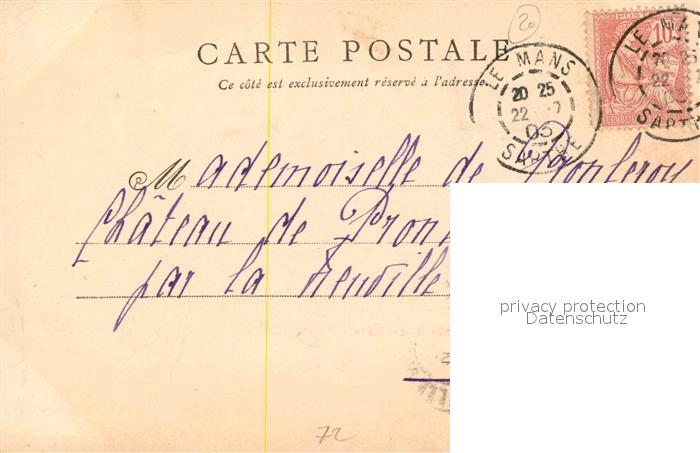 20
CARTE POSTALE
Ce côté est exclusivement réservé à l'adresse
LE MANS
20 25
22
03
SARTHE
10
POSTES
LE MA
22
SARTH
Mademoiselle de Pronleroy
Château de Pron
par la Neuville
privacy protection
Datenschutz
72